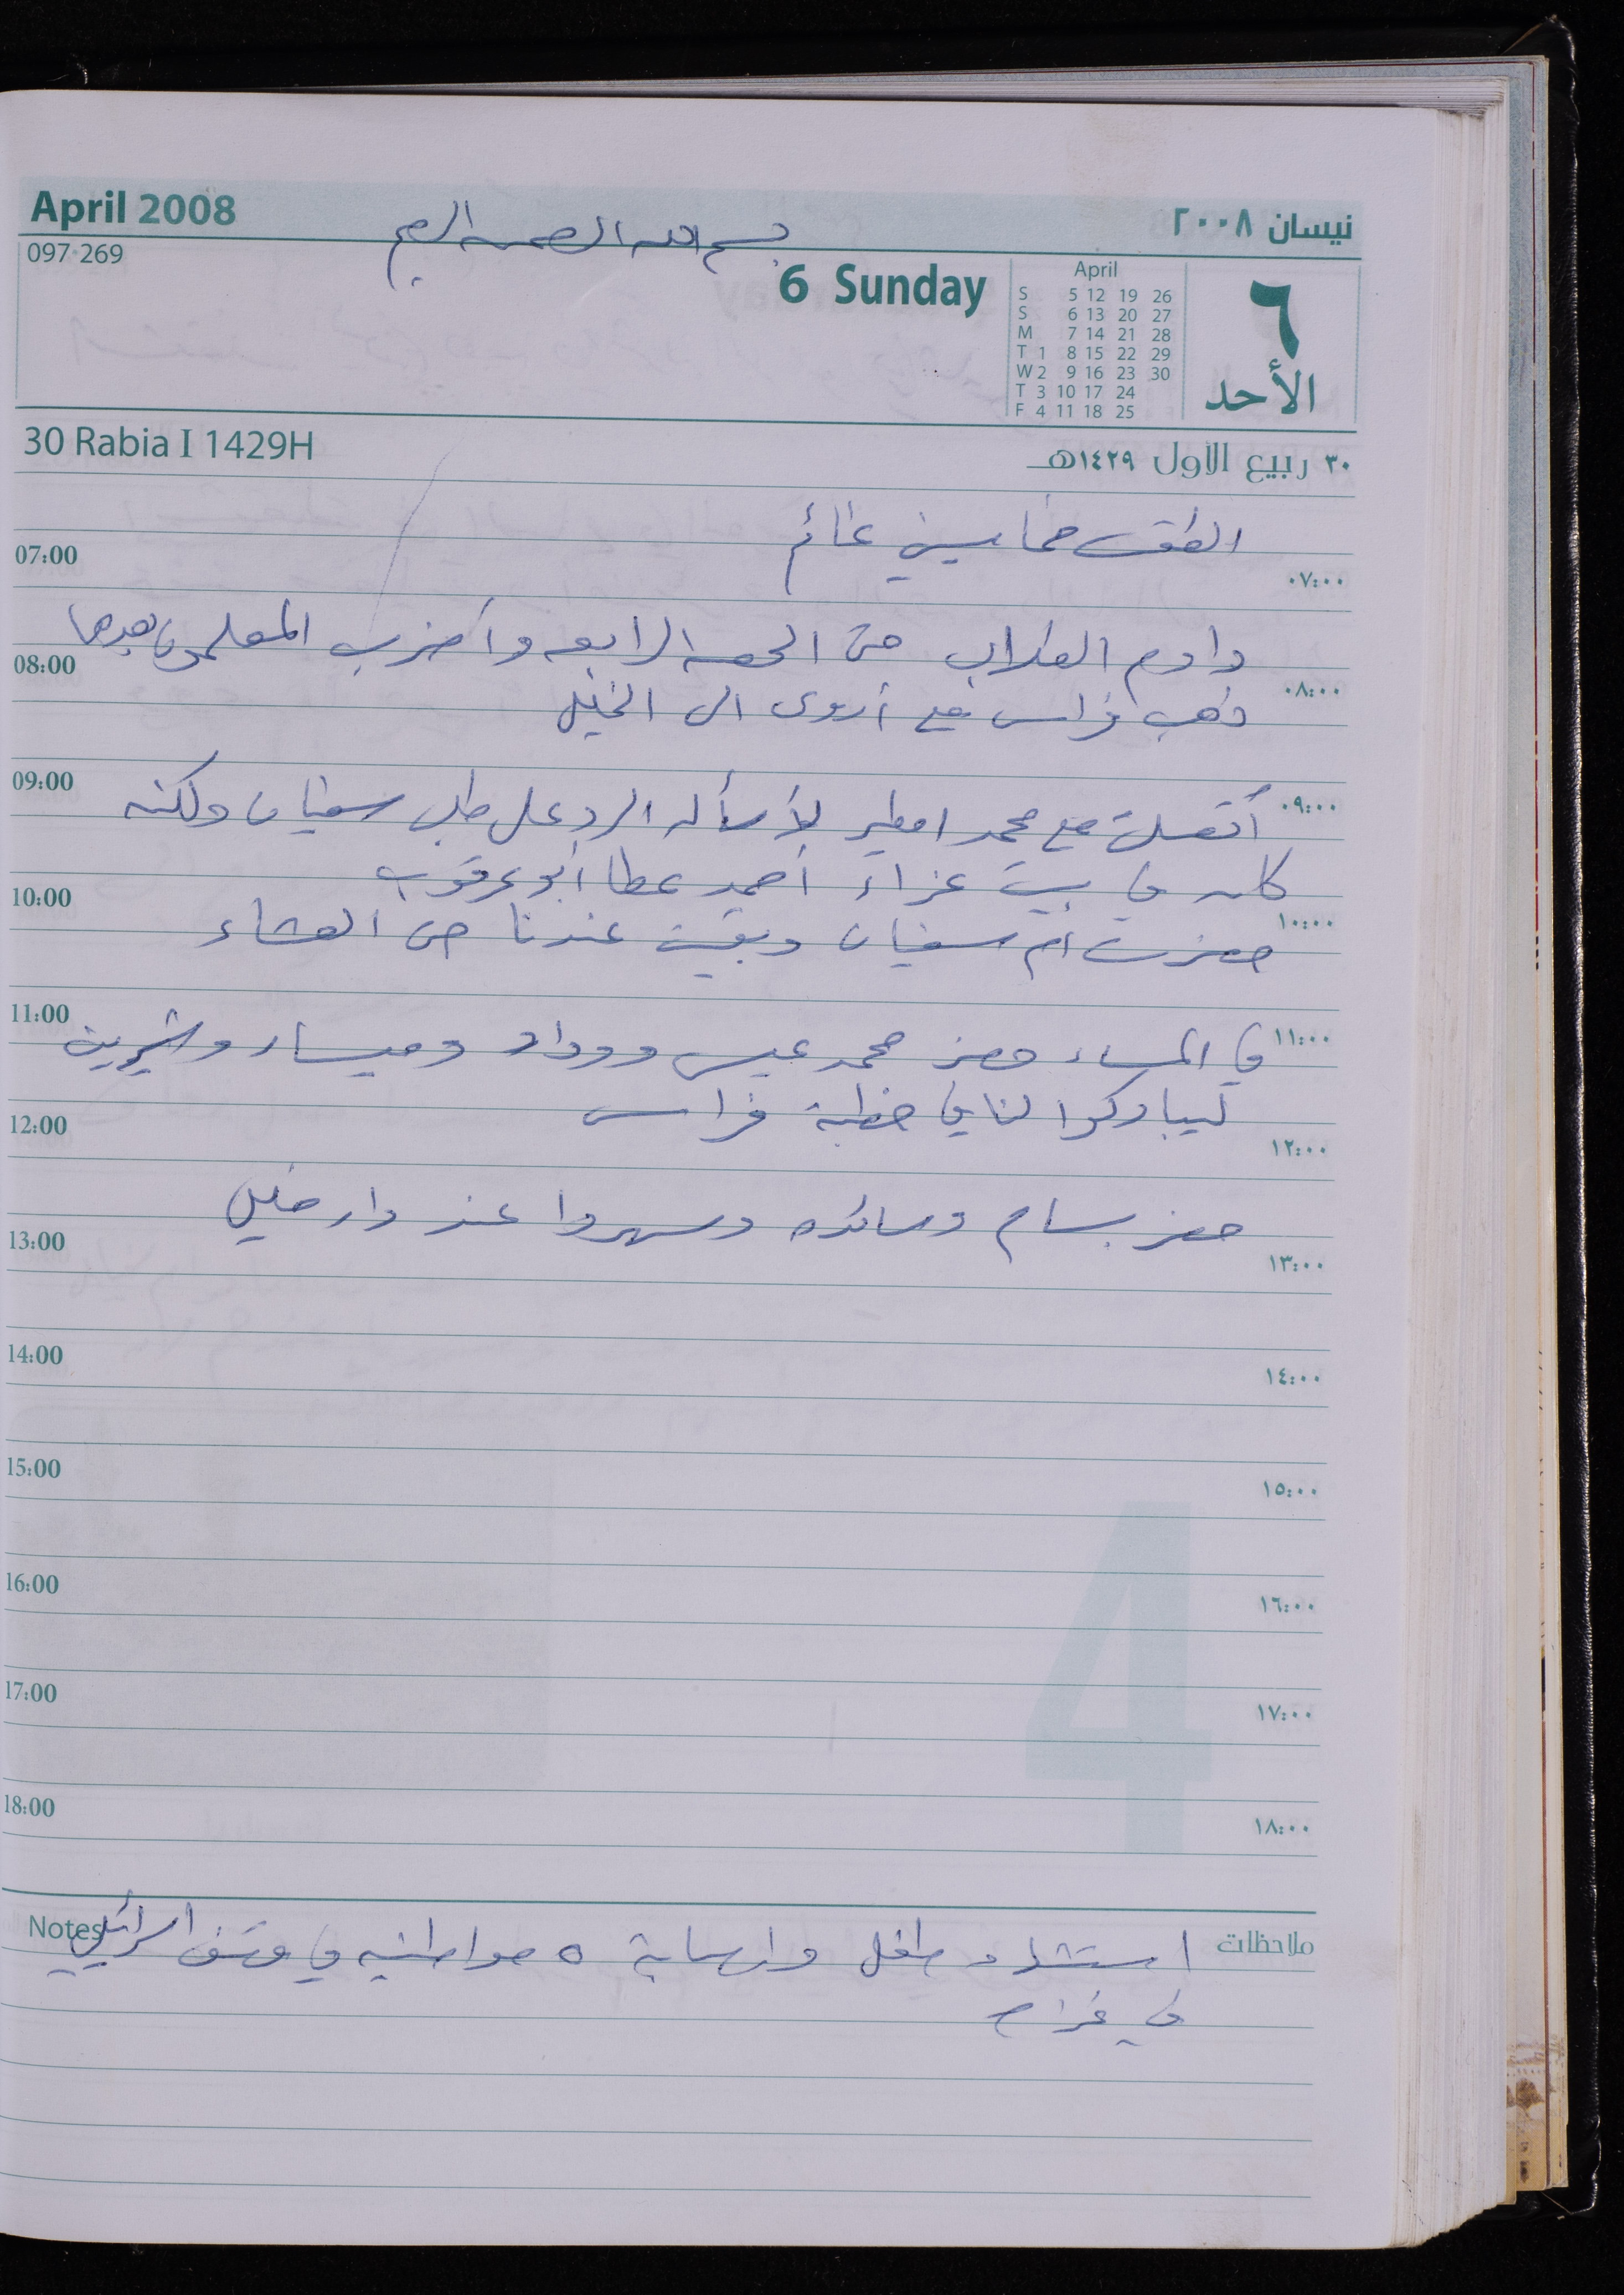 April 2008
نيسان ٢٠٠٨
بسم الله الرحمن الرحيم
097-269
6 Sunday
April
S 5 12 19 26
S 6 13 20 27
M 7 14 21 28
T 1 8 15 22 29
W 2 9 16 23 30
T 3 10 17 24
F 4 11 18 25
٦
الأحد
30 Rabia I 1429H
٣٠ ربيع الأول ١٤٢٩هـ
الطقس خماسيني غائم
07:00 ٠٧:٠٠
داوم الطلاب حتى الحصه الرابعه وأضرب المعلمون بعدها
08:00 ٠٨:٠٠
ذهب فراس مع أروى الى الخليل
09:00 ٠٩:٠٠
أتصلت مع محمد امطير لأسأله الرد على طلب سفيان ولكنه
كان في بيت عزاء احمد عطا أبو عرقوب
10:00 ١٠:٠٠
حضرت ام سفيان وبقيت عندنا حتى العشاء
11:00 ١١:٠٠
في المساء حضر محمد عيسى ووداد وميسار وشيرين
ليباركوا لنا في خطبة فراس
12:00 ١٢:٠٠
حضر بسام وسائده وسهروا عند دار خليل
13:00 ١٣:٠٠
14:00 ١٤:٠٠
15:00 ١٥:٠٠
16:00 ١٦:٠٠
4
17:00 ١٧:٠٠
18:00 ١٨:٠٠
Notes ملاحظات
استشهاد طفل واصابة ٥ مواطنين في قصف اسرائيلي
في غزة